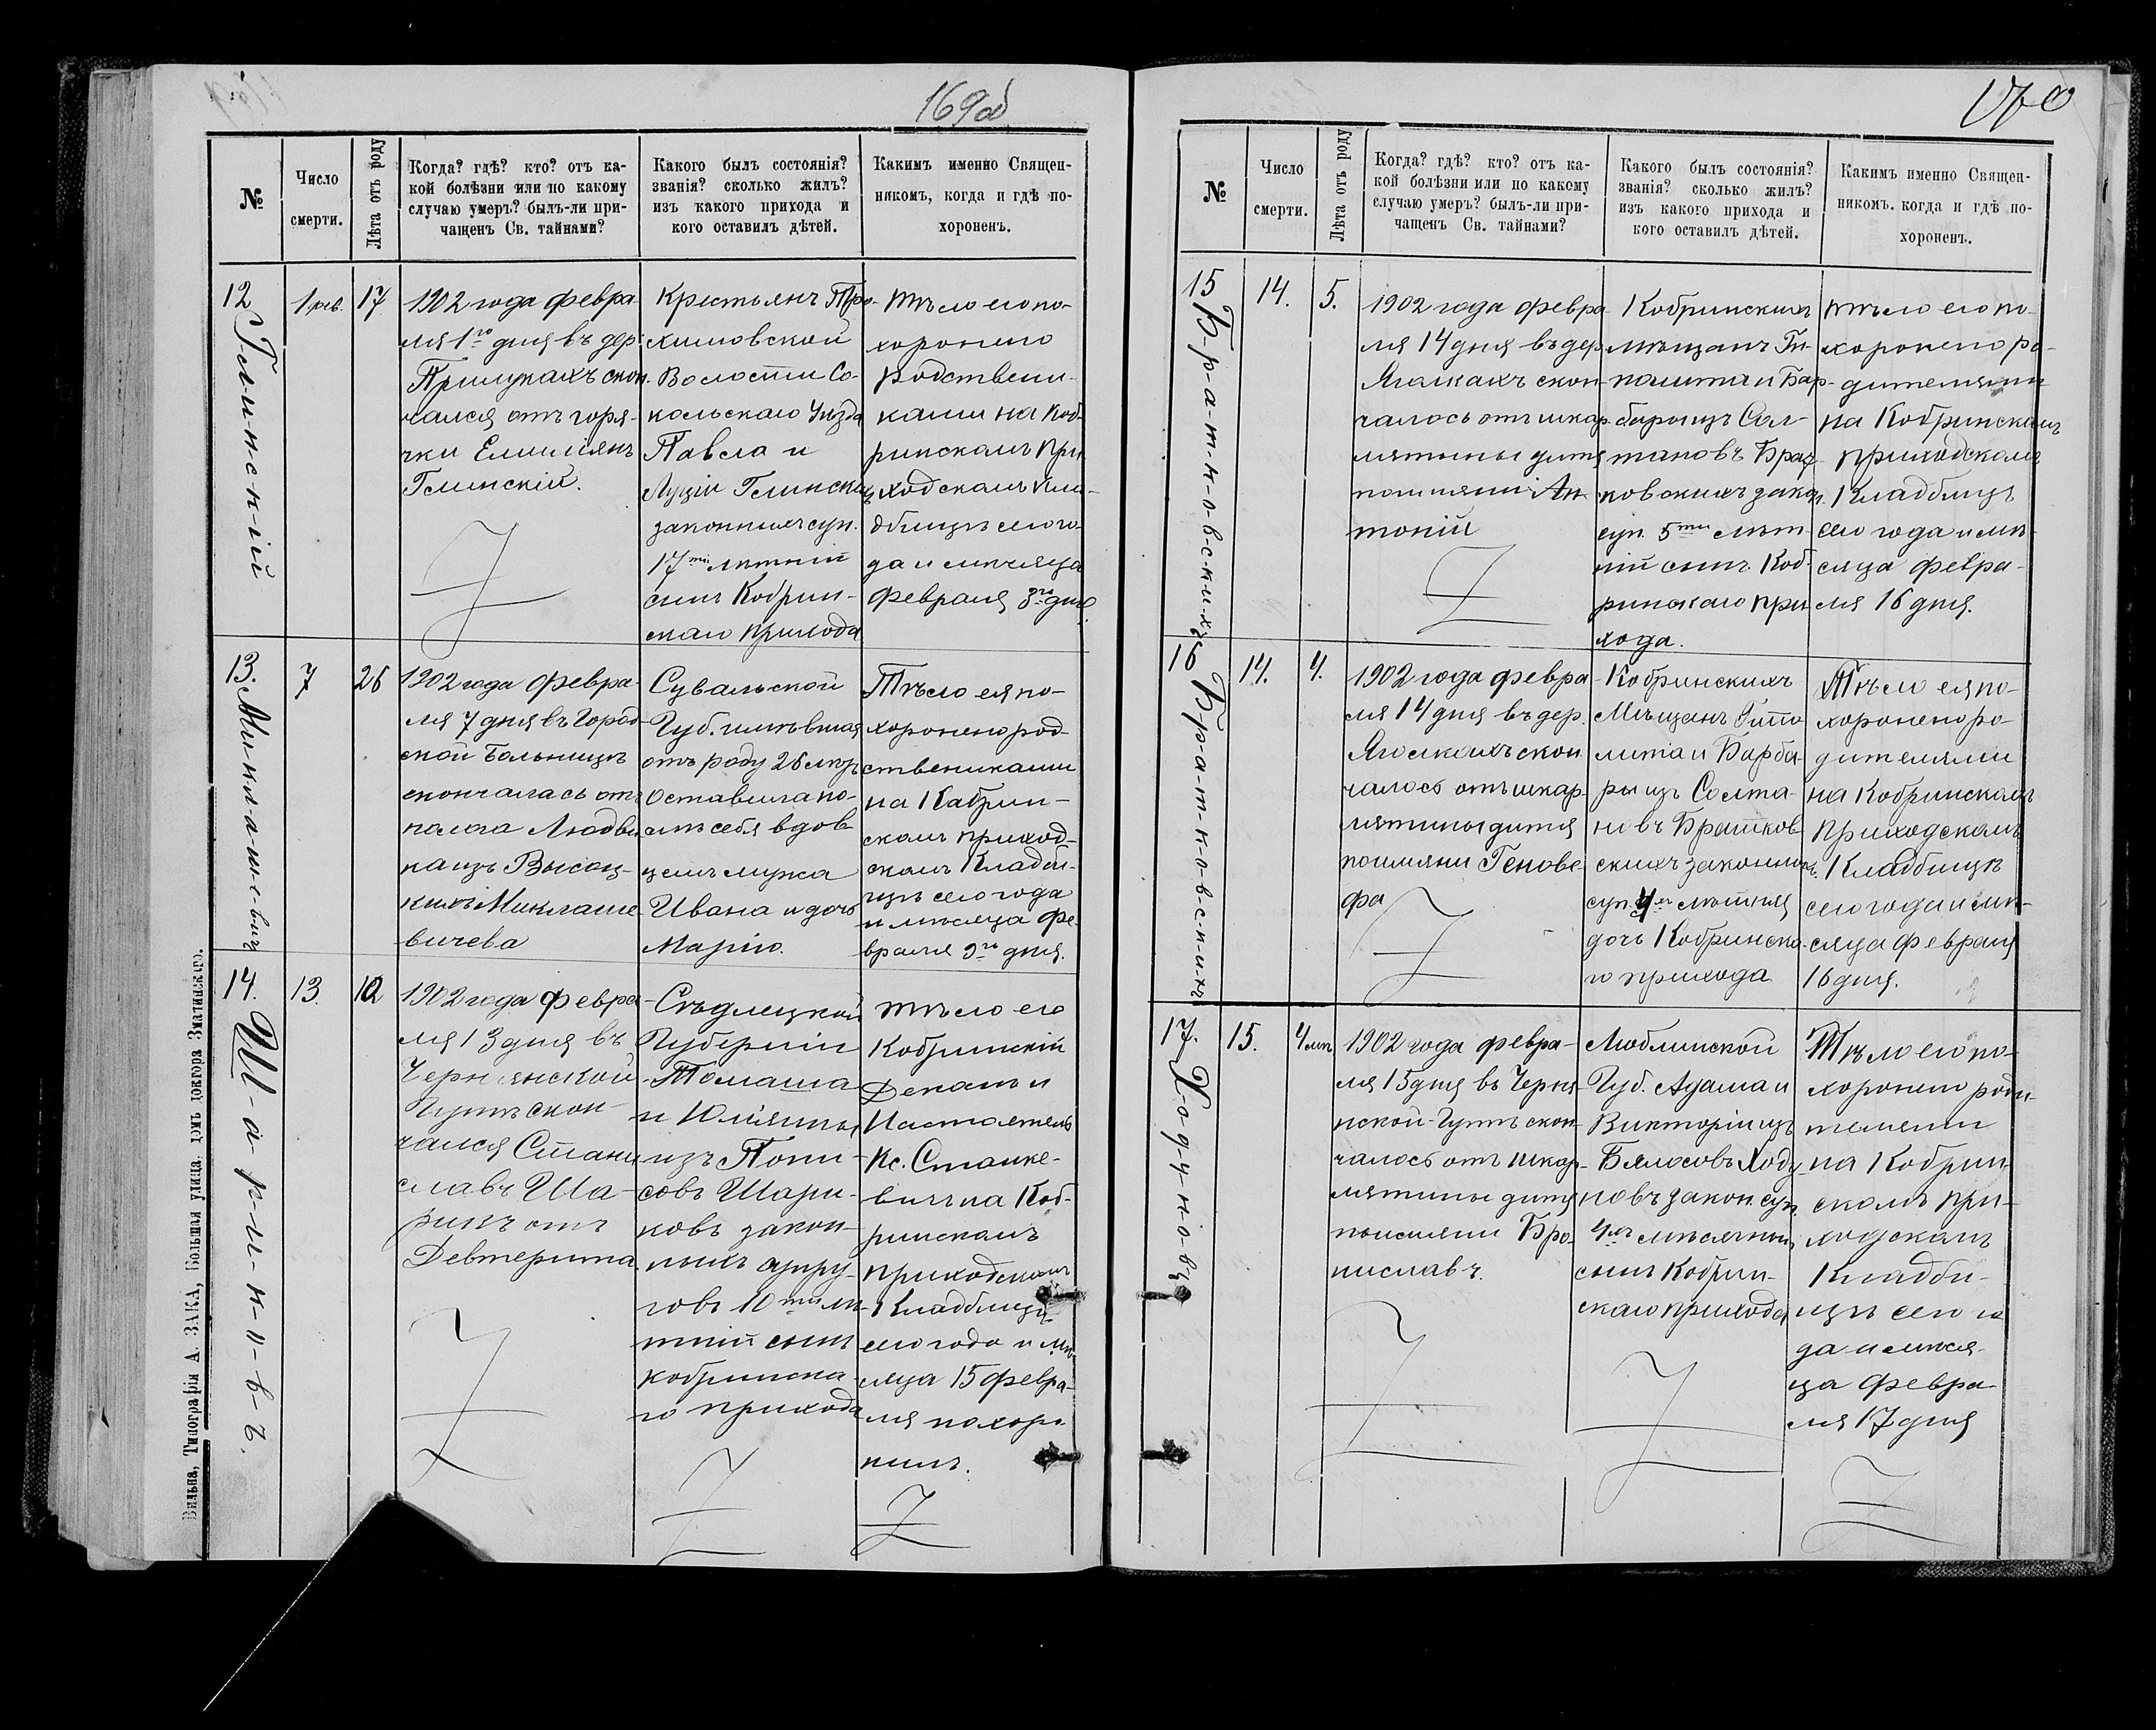 169об
№
Число
смерти.
Лѣта отъ роду
Когда? гдѣ? кто? отъ ка-
кой болѣзни или по какому
случаю умеръ? былъ-ли при-
чащенъ Св. тайнами?
Какого былъ состоянія?
званія? сколько жилъ?
изъ какого прихода и
кого оставилъ дѣтей.
Какимъ именно Священ-
никомъ, когда и гдѣ по-
хороненъ.
12
Глинскій
1 фев.
17
1902 года февра-
ля 1го дня въ дер.
Прилукахъ скон-
чался отъ горя-
чки Емиліянъ
Глинскій.
Крестьянъ Тро-
химовской
Волости Со-
кольскаго Уѣзда
Павла и
Луціи Глинскихъ
законныхъ суп.
17ти лѣтній
сынъ Кобрин-
скаго прихода
Тѣло его по-
хоронено
родствени-
ками на Коб-
ринскомъ при
ходскомъ Кла-
дбищѣ сего го-
да и мѣсяца
февраля 3го дня.
13.
Миклашевичъ
7
26
1902 года февра-
ля 7 дня въ Город
ской Больницѣ
скончалась отъ
полога Людви
ка изъ Высоц-
кихъ Миклаше
вичева
Сувальской
Губ. имѣвшая
отъ роду 26 лѣтъ
Оставила по-
слѣ себя вдов
цемъ мужа
Ивана и дочь
Марію.
Тѣло ея по-
хоронено род-
ствениками
на Кабрин-
скомъ приход-
скомъ Кладби-
щѣ сего года
и мѣсяца фе-
враля 9го дня.
14.
Ш-а-р-и-к-о-в-ъ.
13.
10
1902 года февра-
ля 13 дня въ
Чернянской
Гутѣ скон-
чался Стани
славъ Ша-
рикъ отъ
Девтерита
Сѣдлецкой
Губерніи
Томаша
и Юліянны
изъ
Шари-
ковъ закон-
ныхъ супру-
говъ 10ти лѣ-
тній сынъ
кобринска-
го прихода
тѣло его
Кобринскій
Деканъ и
Настоятель
Кс. Станке-
вичъ на Коб-
ринскомъ
приходскомъ
Кладбищѣ
сего года и мѣ-
сяца 15 февра-
ля похоро
нилъ.
Вильна, Типографія А. ЗАКА, Большая улица, домъ доктора Змачинскаго.
170
№
Число
смерти.
Лѣта отъ роду
Когда? гдѣ? кто? отъ ка-
кой болѣзни или по какому
случаю умеръ? былъ-ли при-
чащенъ Св. тайнами?
Какого былъ состоянія?
званія? сколько жилъ?
изъ какого прихода и
кого оставилъ дѣтей.
Какимъ именно Священ-
никомъ. когда и гдѣ по-
хороненъ.
15
Б-р-а-т-к-о-в-с-к-и-хъ
14.
5.
1902 года февра
ля 14 дня въ дер
Ягелкахъ скон-
чалось отъ шкар
лятины дитя
поимяни Ан
тоній
Кобринскихъ
мѣщанъ Ги-
полита и Бар-
бары изъ Сол-
тановъ Брат
ковскихъ закон.
суп. 5ти лѣт-
ній сынъ Коб-
ринскаго при
хода.
тѣло его по-
хоронено ро-
дителями
на Кобринскомъ
приходскомъ
Кладбищѣ
сего года и мѣ-
сяца февра-
ля 16 дня.
16
Б-р-а-т-к-о-в-с-к-и-хъ
14.
4.
1902 года февра
ля 14 дня въ дер.
Ягелкахъ скон
чалось отъ шкар-
лятины дитя
поимяни Генове
фа
Кобринскихъ
Мѣщанъ Гипо
лита и Барба-
ры изъ Солта-
новъ Братков
скихъ законныхъ
суп. 4хъ лѣтняя
дочь Кобринска-
го прихода
Тѣло ея по-
хоронено ро-
дителями
на Кобринскомъ
приходскомъ
Кладбищѣ
сего года и мѣ-
сяца февраля
16 дня.
17.
Х-о-д-у-н-о-въ
15.
4 мѣс
1902 года февра-
ля 15 дня въ Черня
нской Гутѣ скон-
чалось отъ шкар-
лятины дитя
поимяни Бро-
ниславъ.
Люблинской
Губ. Адама и
Викторіи изъ
Бялосовъ Ходу-
новъ закон. суп.
4хъ мѣсячный
сынъ Кобрин-
скаго прихода
Тѣло его по-
хоронено роди-
телями
на Кобрин
скомъ при-
ходскомъ
Кладби-
щѣ сего го
да и мѣся-
ца февра
ля 17 дня